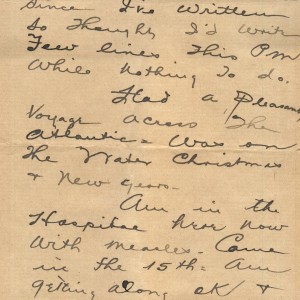 Since I've Written
So Thought I'd Write
Few lines This Pm
While Nothing To do.
Had a Pleasant
Voyage across The
Atlantic = Was on
The Water Christmas
+ New Years -
Am in the
Hospital here now
With Measles - Came
in the 15th = Am
Getting along OK +